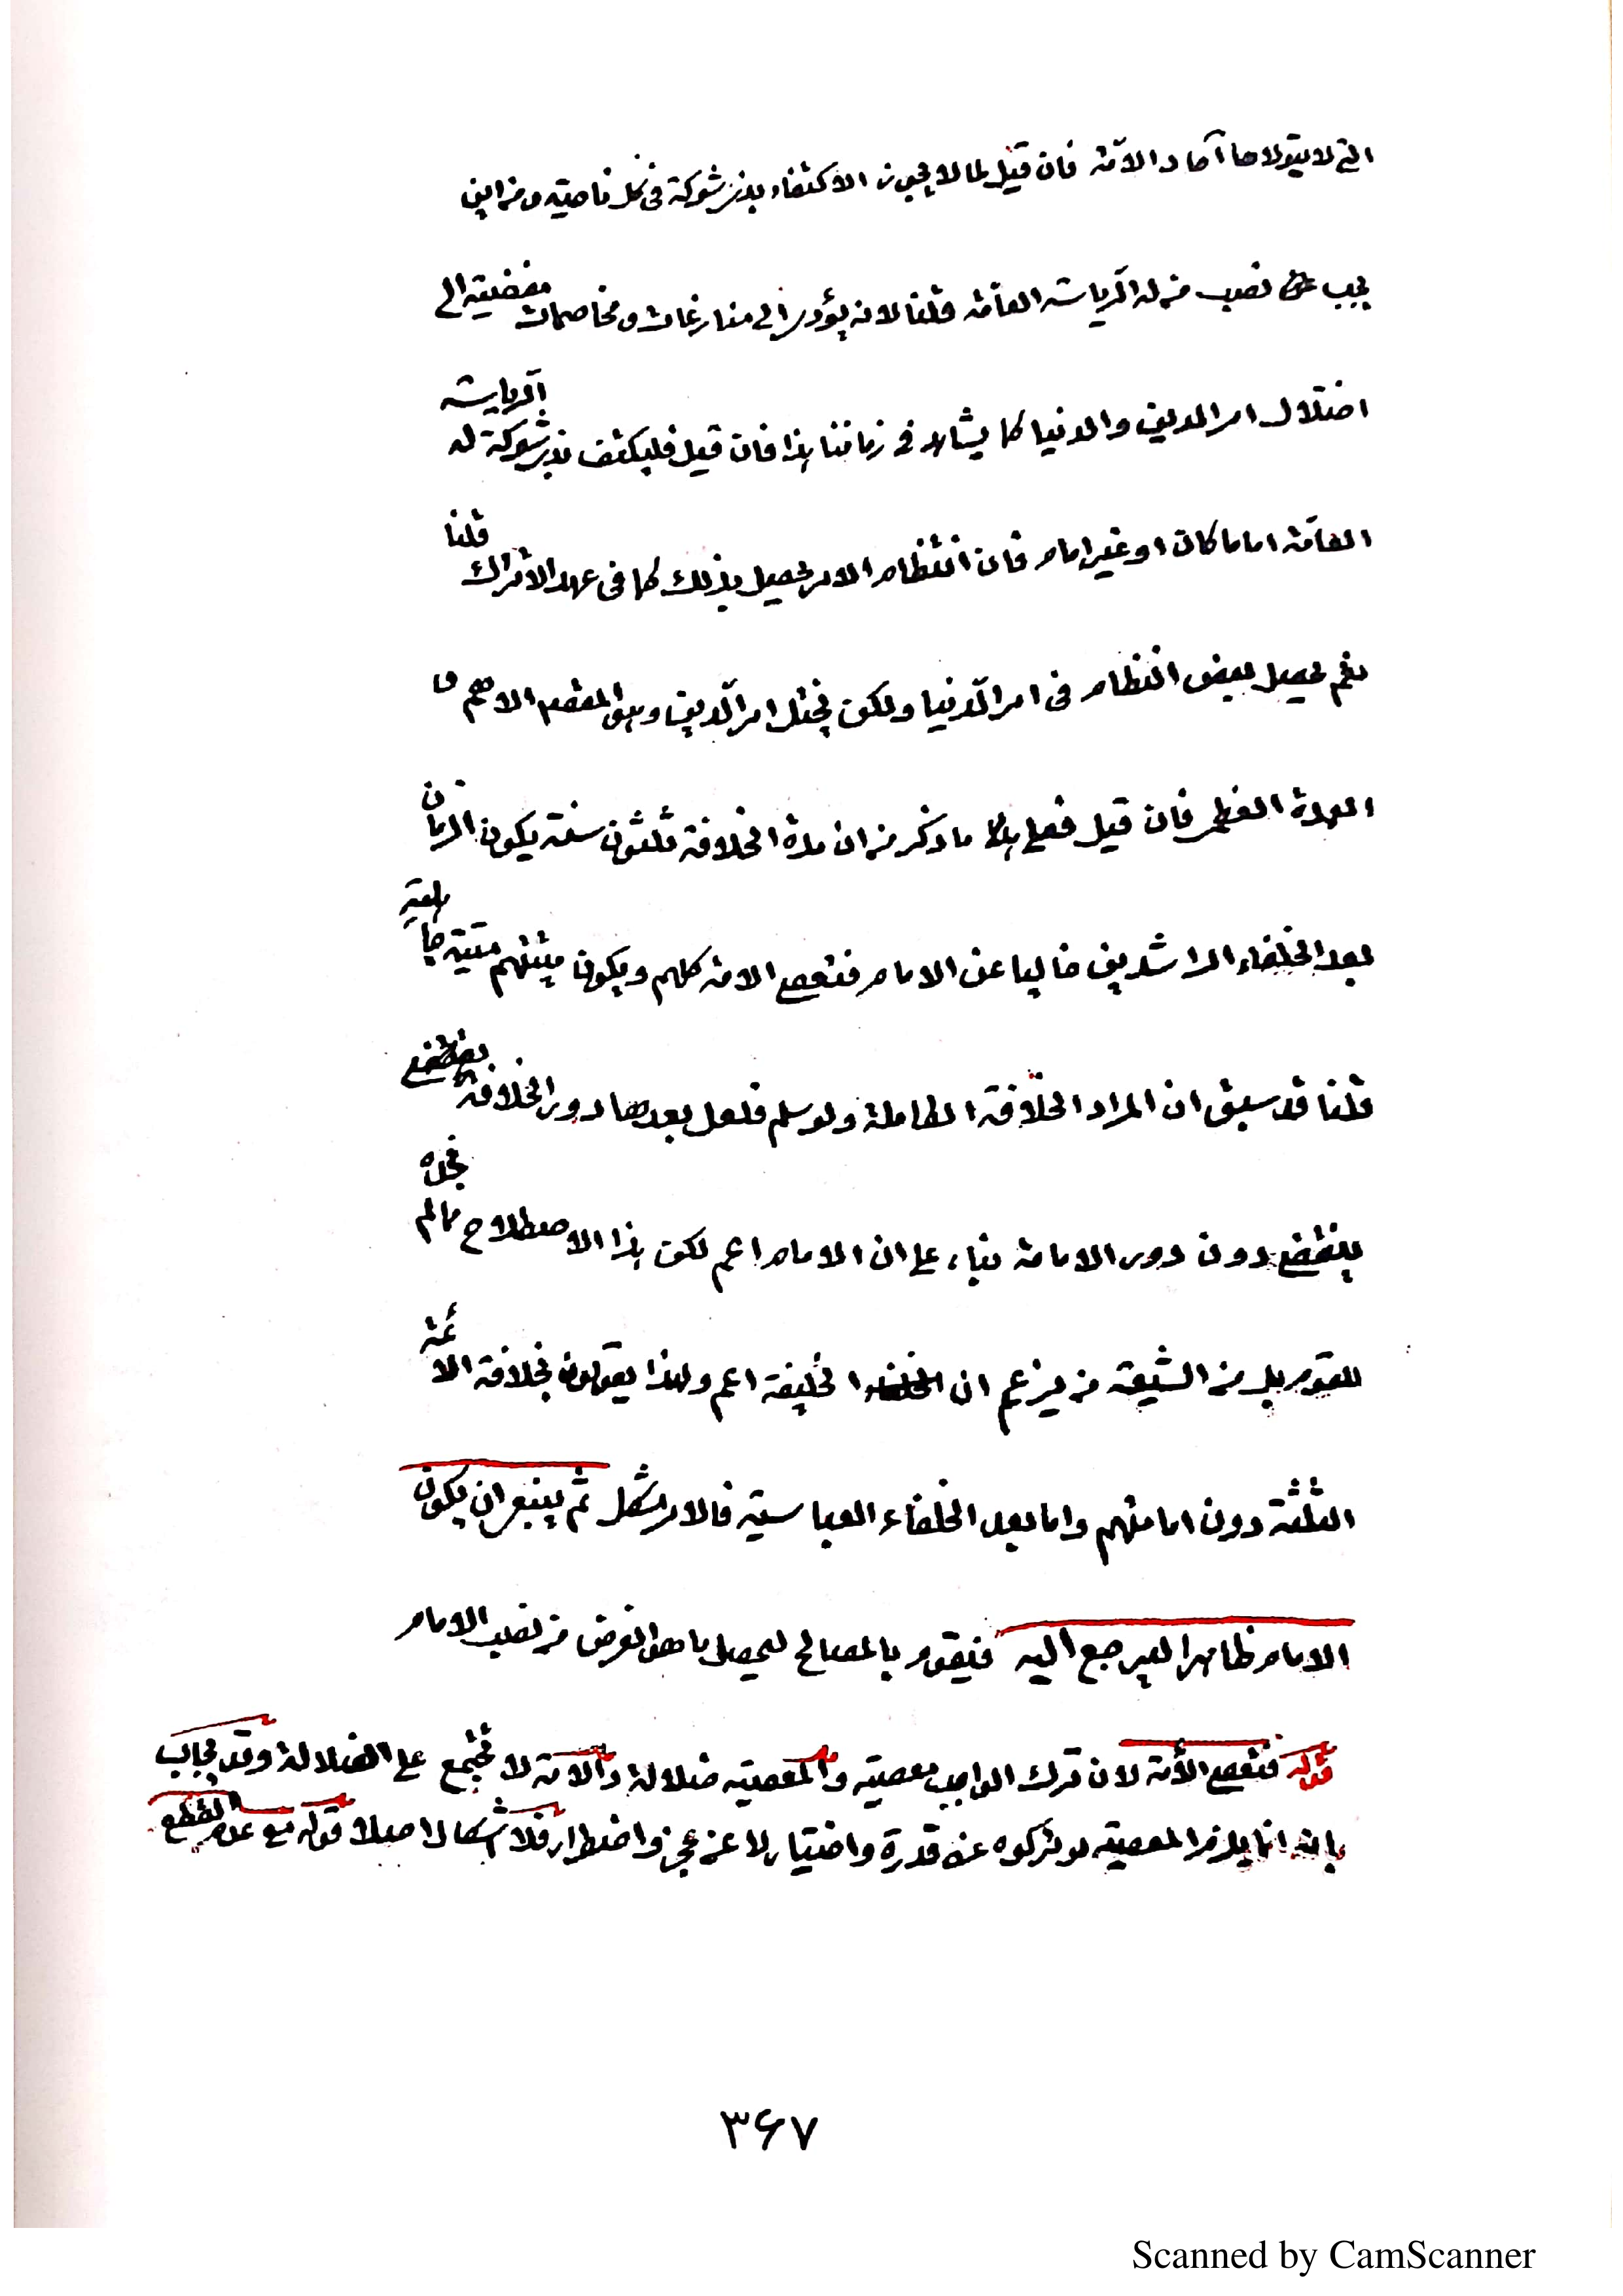 التي لا يتولاها آحاد الامّة فان قيل لما لا يجوز الاكتفاء بذي شوكة في كل ناحية ومن اين
يجب نصب من له الرياسة العامّة قلنا لانه يؤدي الى منازعات ومخاصمات مفضية الى
اختلال امر الدين والدنيا كما يشاهد في زماننا هذا فان قيل فليكتف بذي شوكة له الرياسة
العامّة اماما كان او غير امام فان انتظام الامر يحصل بذلك كما في عهد الاتراك قلنا
نعم يحصل بعض النظام في امر الدّنيا ولكن يختل امر الدّين وهو المقصود الاهم و
العمدة العظمى فان قيل فعلى هذا ما ذكر من ان مدة الخلافة ثلثون سنة يكون الزمان
بعد الخلفاء الراشدين خاليا عن الامام فتعصى الامة كلهم ويكون ميتتهم ميتة جاهلية
قلنا قد سبق ان المراد الخلافة الكاملة ولو سلم فلعل بعدها دور الخلافة ينقضي
ينقضي دون دور الامامة بناء على ان الامام اعم لكن هذا الاصطلاح مما لم نجده
للقوم بل من الشيعة من يزعم ان الخليفة اعم ولهذا يقولون بخلافة الائمة
الثلثة دون امامتهم واما بعد الخلفاء العباسية فالامر مشكل ثم ينبغي ان يكون
الامام ظاهرا ليرجع اليه فيقوم بالمصالح ليحصل ما هو الغرض من نصب الامام
قوله فتعصى الأمة لان ترك الواجب معصية والمعصية ضلالة والامة لا تجتمع على الضلالة وقد يجاب
بانه انما يلزم المعصية لو تركوه عن قدرة واختيار لا عن عجز واضطرار فلا اشكال اصلا قوله مع عدم القطع
٣٦٧
Scanned by CamScanner